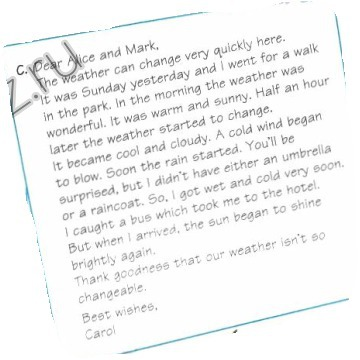 C. Dear Alice and Mark,
The weather can change very quickly here.
It was Sunday yesterday and I went for a walk
in the park. In the morning the weather was
wonderful. It was warm and sunny. Half an hour
later the weather started to change.
It became cool and cloudy. A cold wind began
to blow. Soon the rain started. You'll be
surprised, but I didn't have either an umbrella
or a raincoat. So, I got wet and cold very soon.
I caught a bus which took me to the hotel.
But when I arrived, the sun began to shine
brightly again.
Thank goodness that our weather isn't so
changeable.
Best wishes,
Carol
Z.ru